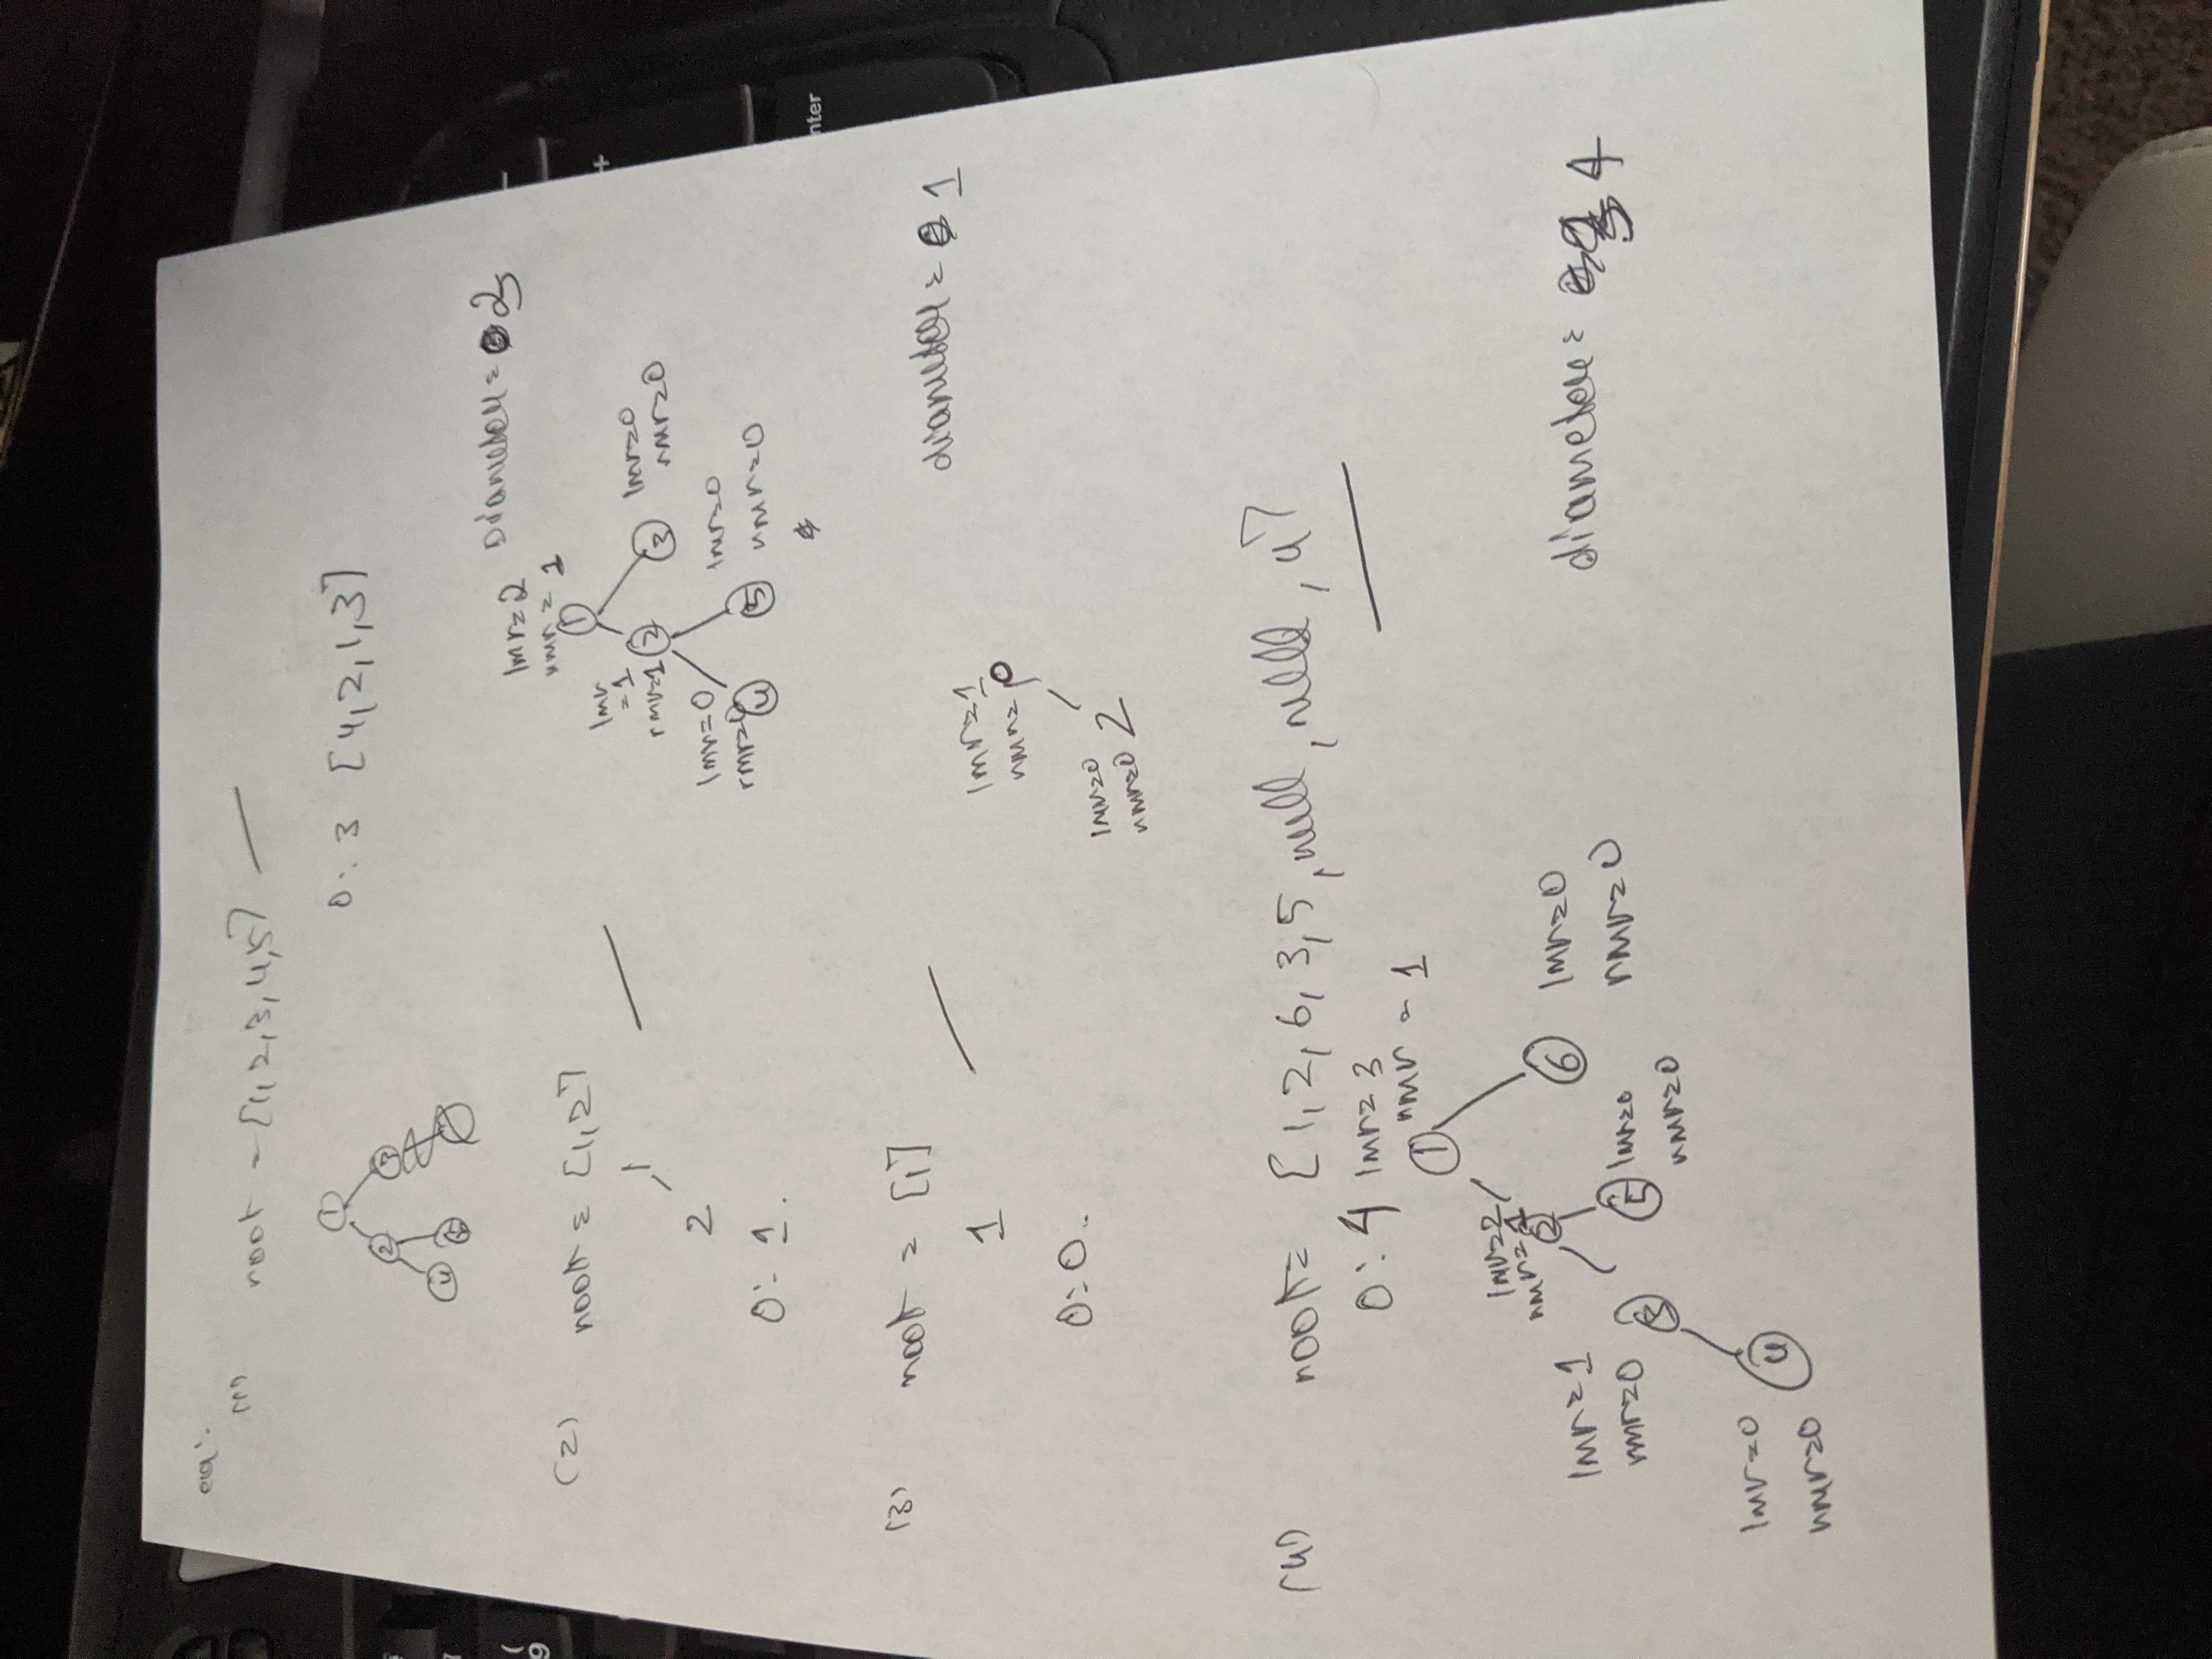 eg:
(1) root = [1,2,3,4,5]
1
2 3
4 5
O: 3 [4,2,1,3]
(2) root = [1,2]
1
2
O: 1.
Diameter = 3
lmr=2
rmr = 1
1
lmr
=1
rmr=1 2
3 lmr=0
rmr=0
lmr=0
rmr=0 4
5 lmr=0
rmr=0
(3) root = [1]
1
O: 0..
diameter = 1
lmr=1
rmr=0
1
lmr=0
rmr=0 2
(4) root = [1,2,6,3,5,null,null,4]
O: 4
lmr=3
rmr = 1
1
lmr=2
rmr=1
2
6 lmr=0
rmr=0
lmr=1
rmr=0 3
5 lmr=0
rmr=0
lmr=0
rmr=0 4
diameter = 4
( 9
+
nter